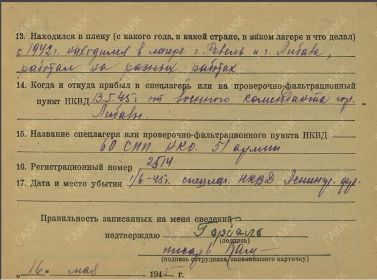 13. Находился в плену (с какого года, в какой стране, в каком лагере и что делал)
с 1942г. находился в лагере г. Ревель и г. Либава,
работал на разных работах
14. Когда и откуда прибыл в спецлагерь или на проверочно-фильтрационный
пункт НКВД 13.5.45г. от военного коменданта гор.
Либавы.
15. Название спецлагеря или проверочно-фильтрационного пункта НКВД
60 СПП НКО. 51 армии
16. Регистрационный номер 2514
17. Дата и место убытия 1/6-45г. спецлаг. НКВД Ленинг.
Правильность записанных на меня сведений
подтверждаю
(подпись)
писарь
(подпись сотрудника, заполнявшего карточку)
„16“ мая 1945 г.